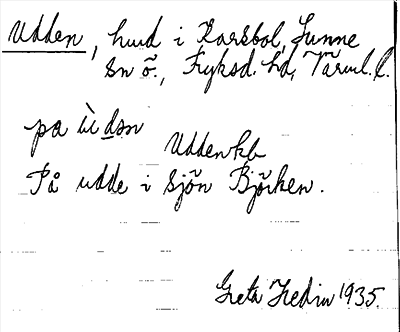 Udden, hmd i Karsbol, Sunne
sn ö., Fryksd. hd, Värml. l.
pa ùdən
Udden kb
På udde i sjön Björken.
Greta Hedin 1935.